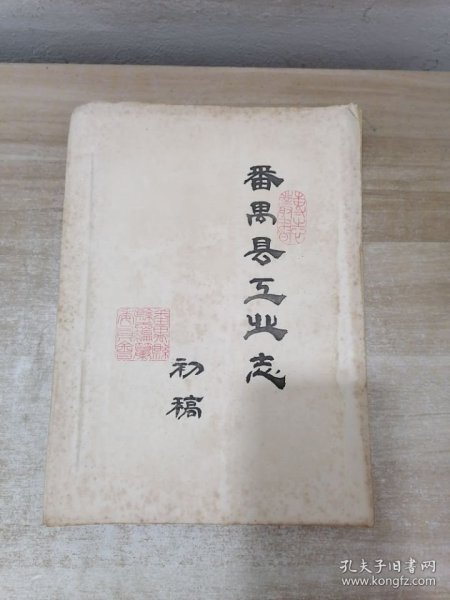 番禺县工业志
初稿
孔夫子旧书网
www.kongfz.com